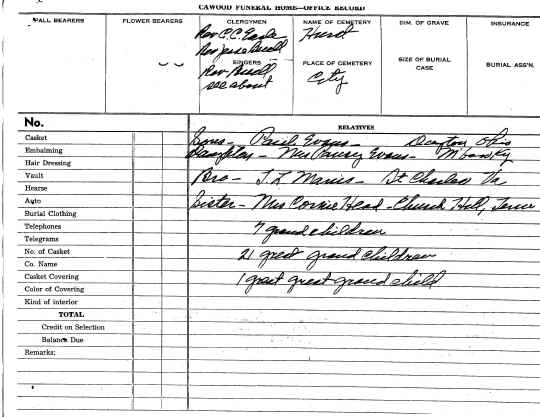 CAWOOD FUNERAL HOME—OFFICE RECORD
PALL BEARERS
FLOWER BEARERS
CLERGYMEN
Rev C.C. Eagle
Rev Jesse Buell
SINGERS
Rev Buell
see about
NAME OF CEMETERY
Hurst
PLACE OF CEMETERY
City
DIM. OF GRAVE
SIZE OF BURIAL
CASE
INSURANCE
BURIAL ASS'N.
No.
RELATIVES
Casket
Sons - Evans - Dayton, Ohio
Embalming
Daughter - Mrs Evans - Ky
Hair Dressing
Vault
Bro - J.L. - St Charles Va
Hearse
Auto
Sister - Mrs Head - Church Hill, Tenn
Burial Clothing
Telephones
7 grand children
Telegrams
No. of Casket
21 great grand children
Co. Name
Casket Covering
1 great great grand child
Color of Covering
Kind of interior
TOTAL
Credit on Selection
Balance Due
Remarks: